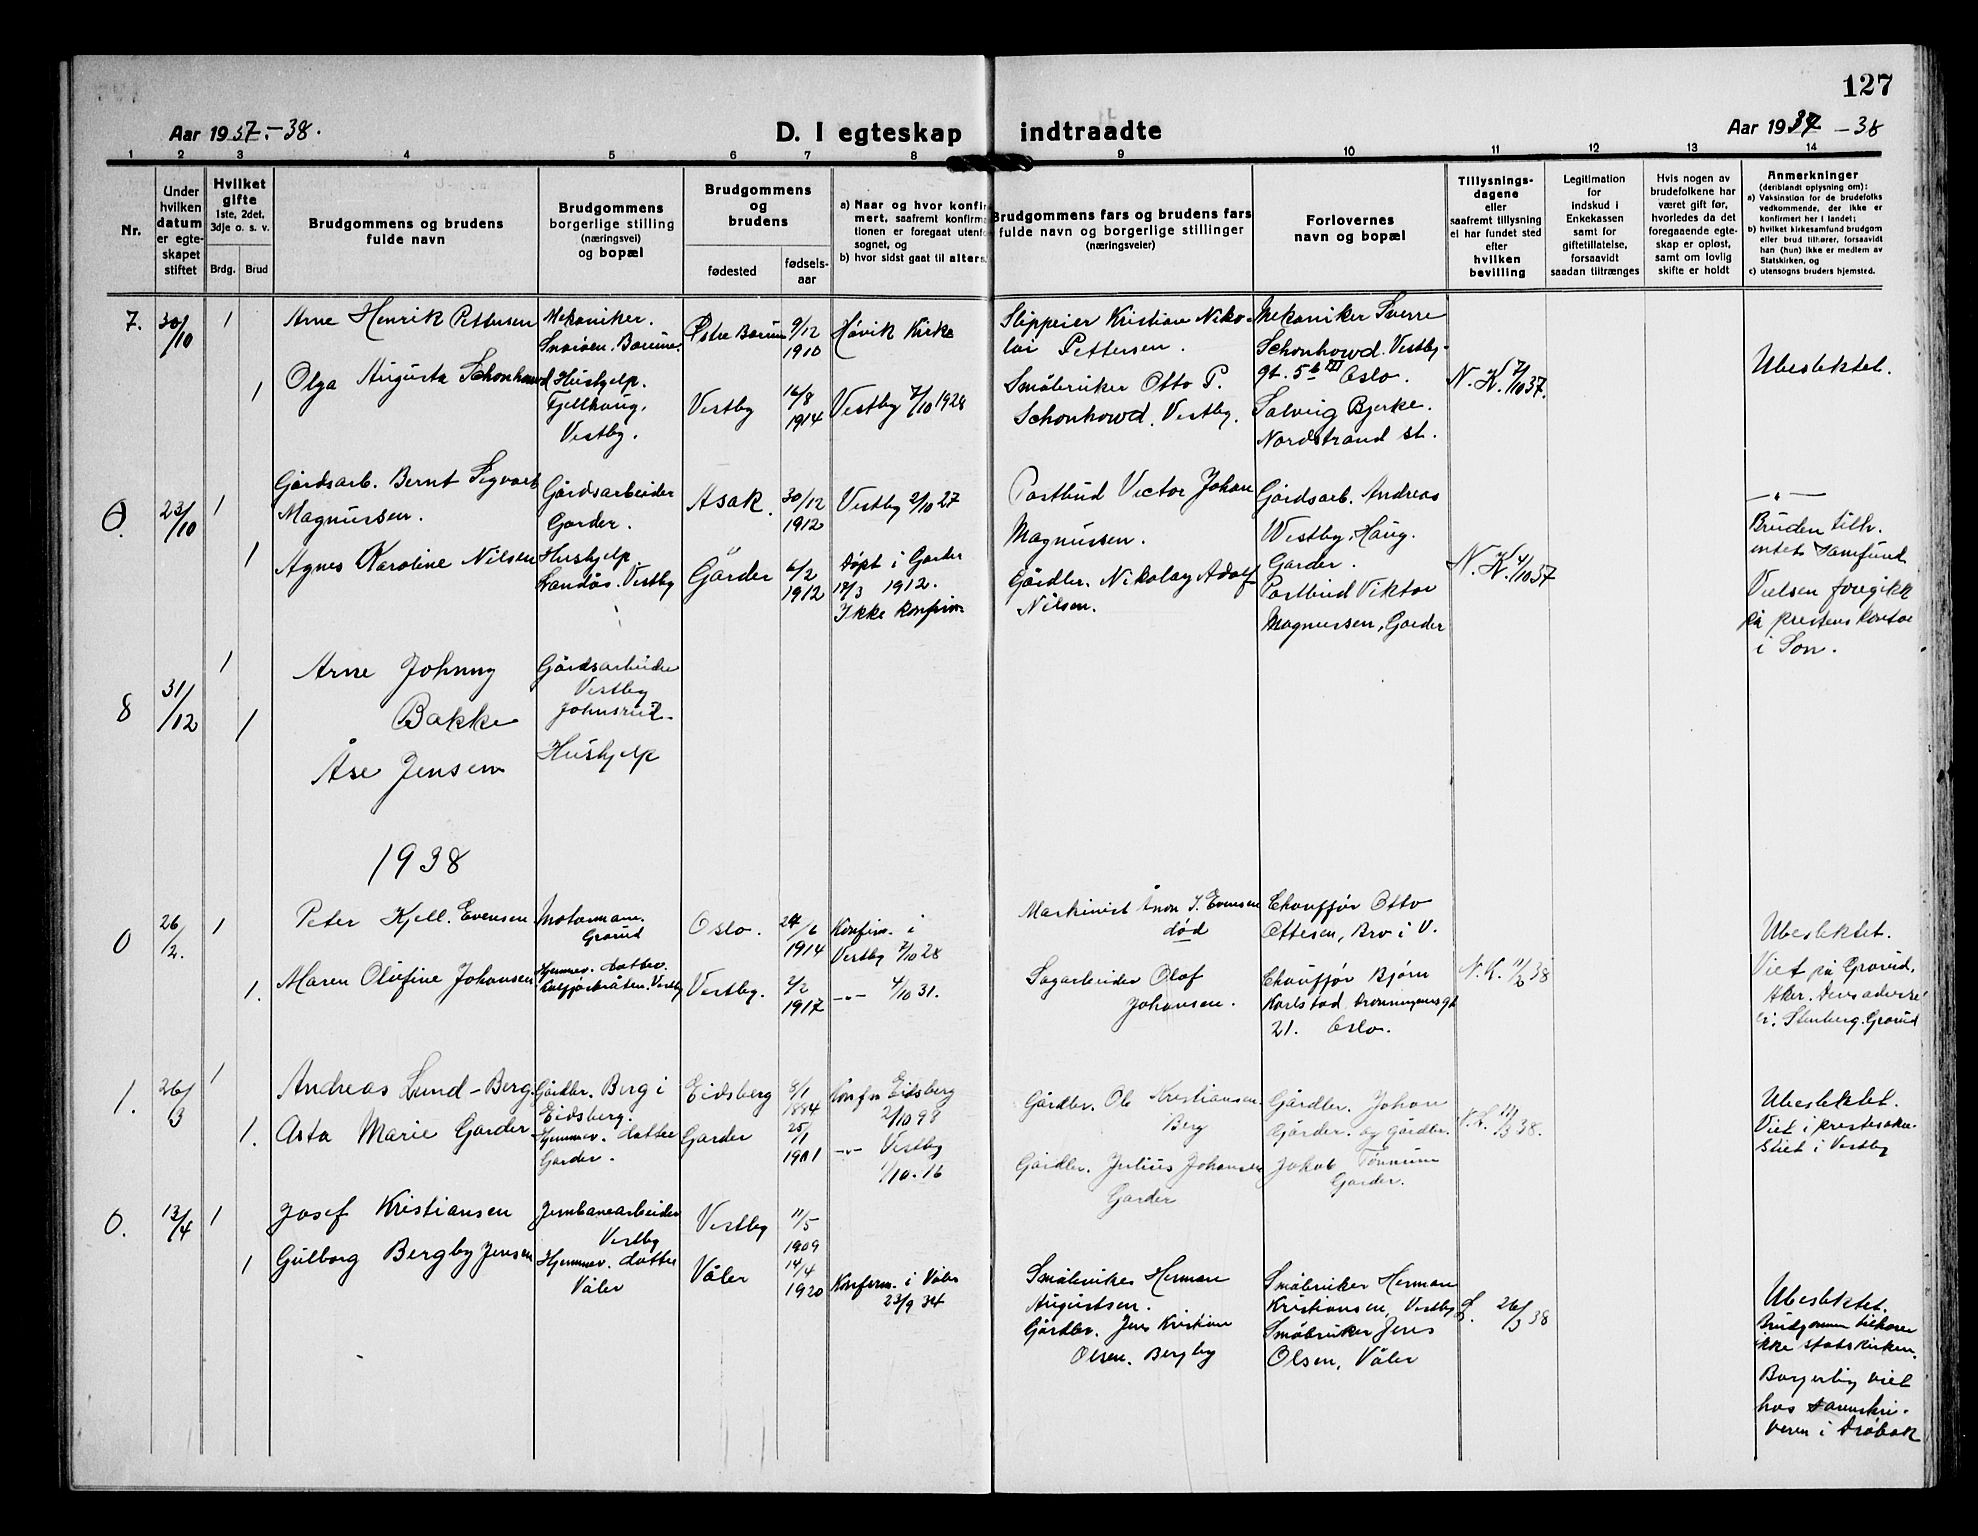 127
Aar 1937.-38.
D. I egteskap indtraadte
Aar 1937 -38
1 2 3 4 5 6 7 8 9 10 11 12 13 14
Nr.
Under
hvilken
datum
er egte-
skapet
stiftet
Hvilket
gifte
1ste, 2det,
3dje o. s. v.
Brdg. Brud
Brudgommens og brudens
fulde navn
Brudgommens
borgerlige stilling
(næringsvei)
og bopæl
Brudgommens
og
brudens
fødested
fødsels-
aar
a) Naar og hvor konfir
mert, saafremt konfirma
tionen er foregaat utenfo
sognet, og
b) hvor sidst gaat til alters.
Brudgommens fars og brudens fars
fulde navn og borgerlige stillinger
(næringsveier)
Forlovernes
navn og bopæl
Tillysnings-
dagene
eller
saafremt tillysning
ei har fundet sted
efter
hvilken
bevilling
Legitimation
for
indskud i
Enkekassen
samt for
giftetillatelse,
forsaavidt
saadan tiltrænges
Hvis nogen av
brudefolkene har
været gift før,
hvorledes da det
foregaaende egte-
skap er opløst,
samt om lovlig
skifte er holdt
Anmerkninger
(deriblandt oplysning om):
a) Vaksination for de brudefolks
vedkommende, der ikke er
konfirmert her i landet;
b) hvilket kirkesamfund brudgom
eller brud tilhører, forsaavidt
han (hun) ikke er medlem av
Statskirken, og
c) utensogns bruders hjemsted.
7.
30/10
1
Arne Henrik Pettersen
Mekaniker.
Snarøen. Bærum.
Østre Bærum
9/12
1910
Høvik Kirke
Slippeier Kristian Niko-
lai Pettersen.
Mekaniker Sverre
Schonhowd. Vestby-
gt. 5b III Oslo.
1
Olga Augusta Schonhowd
Hushjelp.
Fjellhaug,
Vestby.
Vestby
16/8
1914
Vestby 7/10 1928
Småbruker Otto P.
Schonhowd. Vestby.
Solveig Bjerke.
Nordstrand st.
N. K. 7/10 37.
Ubeslektet.
0.
23/10
1
Gårdsarb. Bernt Sigvart
Magnussen.
Gårdsarbeider
Garder.
Asak.
30/12
1912
Vestby 2/10 27
Postbud Victor Johan
Magnussen.
Gårdsarb. Andreas
Westby, Haug.
Garder.
1
Agnes Karoline Nilsen
Hushjelp
Landås. Vestby
Garder
6/2
1912
Døpt i Garder
17/3 1912.
Ikke konfirm
Gårdbr. Nikolay Adolf
Nilsen.
Postbud Viktor
Magnussen, Garder
N. K. 4/10 37
— " —
Bruden tilh.
intet samfund
Vielsen foregikk
på prestens kontor
i Son.
8
31/12
1
1
Arne Johnny
Bakke
Åse Jensen
Gårdsarbeider
Vestby
Johnsrud.
Hushjelp
1938
0
26/2.
1
Peter Kjell. Evensen
Motormann.
Grorud
Oslo.
24/6
1914
Konfirm. i
Vestby 7/10 28
Maskinist J. Evensen
død
Chauffør Otto
Ottesen, Bro i V.
1.
Maren Olufine Johansen
Hjemmev. datter.
Vestby
Vestby.
2/2
1917
—"— 4/10 31.
Sagarbeider Olaf
Johansen.
Chauffør Bjørn
Karlstad, Dronningensgt
21. Oslo.
N. K. 11/2 38
Ubeslektet.
Viet på Grorud,
Aker. Deres adresse
er: Stenberg. Grorud
1.
26/3
1
Andreas Lund-Berg.
Gårdbr. Berg i
Eidsberg.
Eidsberg
8/1
1884
Konfir Eidsberg
2/10 98
Gårdbr. Ole Kristiansen
Berg
Gårdbr. Johan
Garder. og gårdbr.
1.
Asta Marie Garder
Hjemmev. datter
Garder.
Garder
25/1
1901
—"— Vestby
1/10. 16
Gårdbr. Julius Johansen
Garder
Jakob Tønnum
Garder.
N. K. 11/3 38.
Ubeslektet.
Viet i prestesakri-
stiet i Vestby
0.
13/4
1
Josef Kristiansen
Jernbanearbeider
Vestby
Vestby
11/5
1909
1
Gulborg Bergby Jensen
Hjemmev. datter
Våler
Våler
14/4
1920
Konfirm. i Våler
23/9 34
Småbruker Herman
Augustsen.
Gårdbr. Jens Kristian
Olsen. Bergby
Småbruker Herman
Kristiansen, Vestby
Småbruker Jens
Olsen, Våler
L. 26/3 38
Ubeslektet.
Brudgommen tilhører
ikke statskirken.
Borgerlig viet
hos sorenskri-
veren i Drøbak